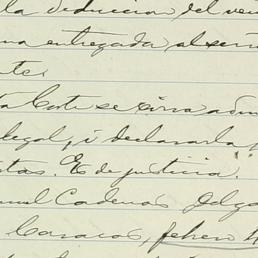 la deduccion del
entregada al
Corte se sirva
legal, i declararla
Es de justicia.
Cadenas
Caracas, febrero